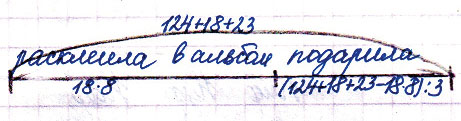 124+18+23
расклеила в альбом подарила
18·8 (124+18+23-18·8):3